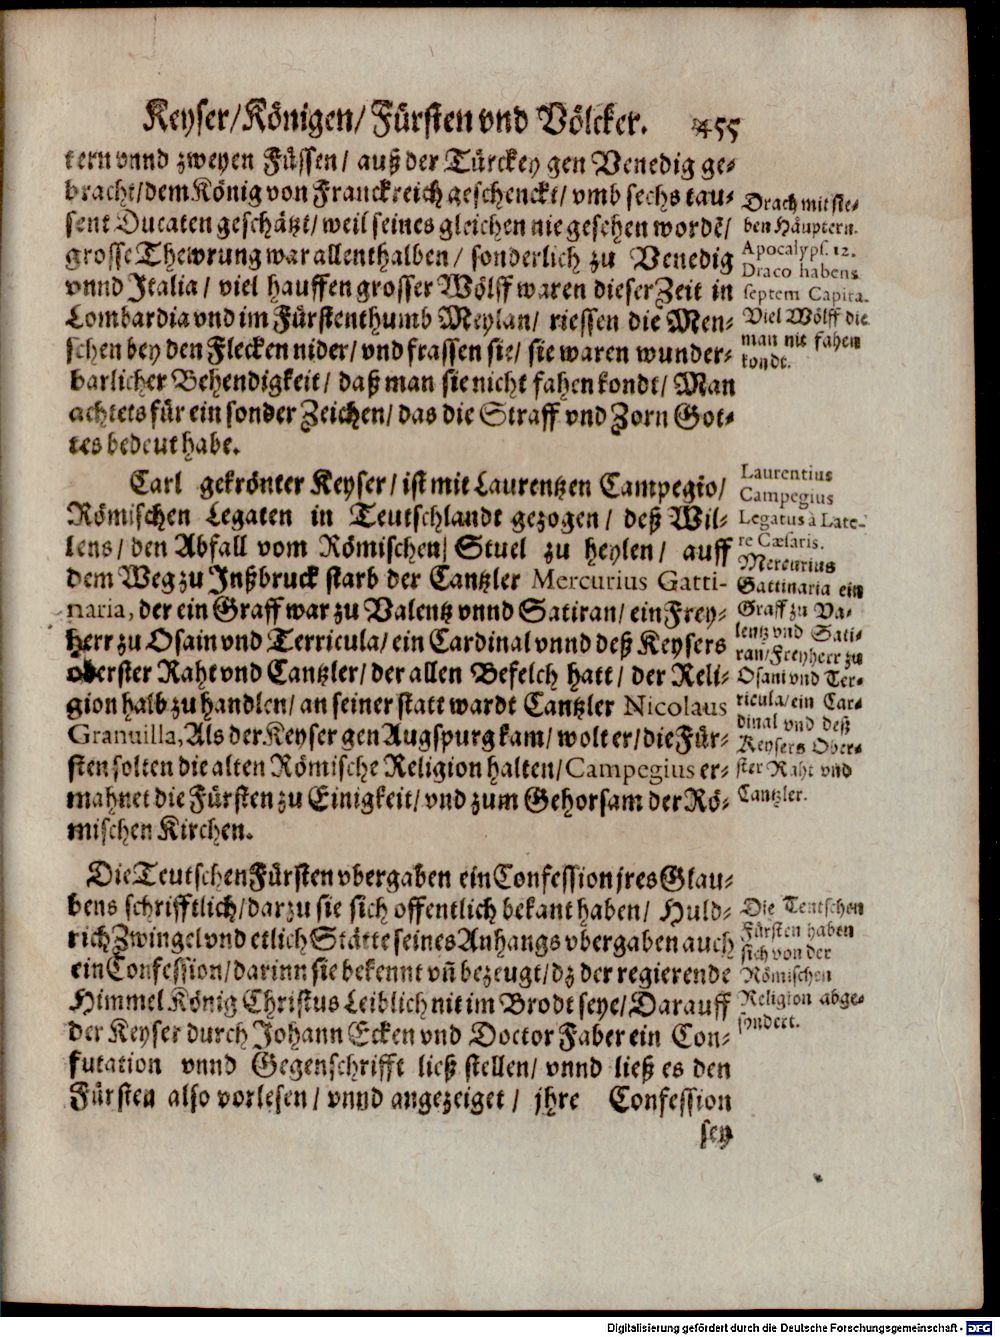 Keyser/Königen/Fürsten vnd Völcker. 455
tern vnnd zweyen Füssen/ auß der Türckey gen Venedig ge-
bracht/dem König von Franckreich geschenckt/ vmb sechs tau-
sent Ducaten geschätzt/ weil seines gleichen nie gesehen wordē/
grosse Thewrung war allenthalben/ sonderlich zu Venedig
vnnd Italia/ viel hauffen grosser Wölff waren dieser Zeit in
Lombardia vnd im Fürstenthumb Meylan/ riessen die Men-
schen bey den Flecken nider/ vnd frassen sie/ sie waren wunder-
barlicher Behendigkeit/ daß man sie nicht fahen kondt/ Man
achtets für ein sonder Zeichen/ das die Straff vnd Zorn Got-
tes bedeut habe.
Drach mit sie-
ben Häuptern.
Apocalyps. 12.
Draco habens
septem Capita.
Viel Wölff die
man nit fahen
kondt.
Carl gekrönter Keyser/ ist mit Laurentzen Campegio/
Römischen Legaten in Teutschlandt gezogen/ deß Wil-
lens/ den Abfall vom Römischen Stuel zu heylen/ auff
dem Weg zu Inßbruck starb der Cantzler Mercurius Gatti-
naria, der ein Graff war zu Valentz vnnd Satiran/ ein Frey-
herr zu Osain vnd Terricula/ ein Cardinal vnnd deß Keysers
oberster Raht vnd Cantzler/ der allen Befelch hatt/ der Reli-
gion halb zu handlen/ an seiner statt wardt Cantzler Nicolaus
Granuilla, Als der Keyser gen Augspurg kam/ wolt er/ die Für-
sten solten die alten Römische Religion halten/ Campegius er-
mahnet die Fürsten zu Einigkeit/ vnd zum Gehorsam der Rö-
mischen Kirchen.
Laurentius
Campegius
Legatus à Late-
re Cæsaris.
Mercurius
Gattinaria ein
Graff zu Va-
lentz vnd Sati-
ran/ Freyherr zu
Osani vnd Ter-
ricula/ ein Car-
dinal vnd deß
Keysers Ober-
ster Raht vnd
Cantzler.
Die Teutschen Fürsten vbergaben ein Confession jres Glau-
bens schrifftlich/ darzu sie sich offentlich bekant haben/ Huld-
rich Zwingel vnd etlich Stätte seines Anhangs vbergaben auch
ein Confession/ darinn sie bekennt vñ bezeugt/ dz der regierende
Himmel König Christus Leiblich nit im Brodt seye/ Darauff
der Keyser durch Johann Ecken vnd Doctor Faber ein Con-
futation vnnd Gegenschrifft ließ stellen/ vnnd ließ es den
Fürsten also vorlesen/ vnnd angezeiget/ jhre Confession
sey
Die Teutschen
Fürsten haben
sich von der
Römischen
Religion abge-
sondert.
Digitalisierung gefördert durch die Deutsche Forschungsgemeinschaft - DFG